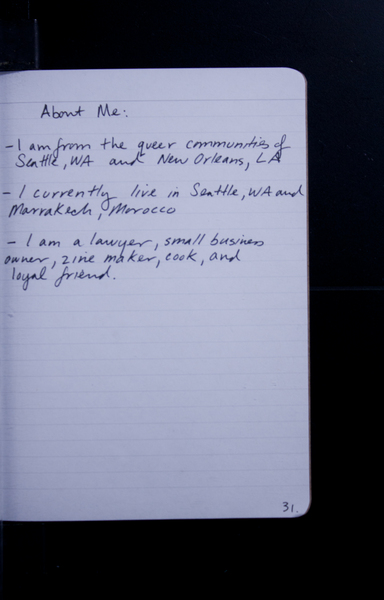 About Me:
- I am from the queer communities of
Seattle, WA and New Orleans, LA
- I currently live in Seattle, WA and
Marrakech, Morocco
- I am a lawyer, small business
owner, zine maker, cook, and
loyal friend.
31.